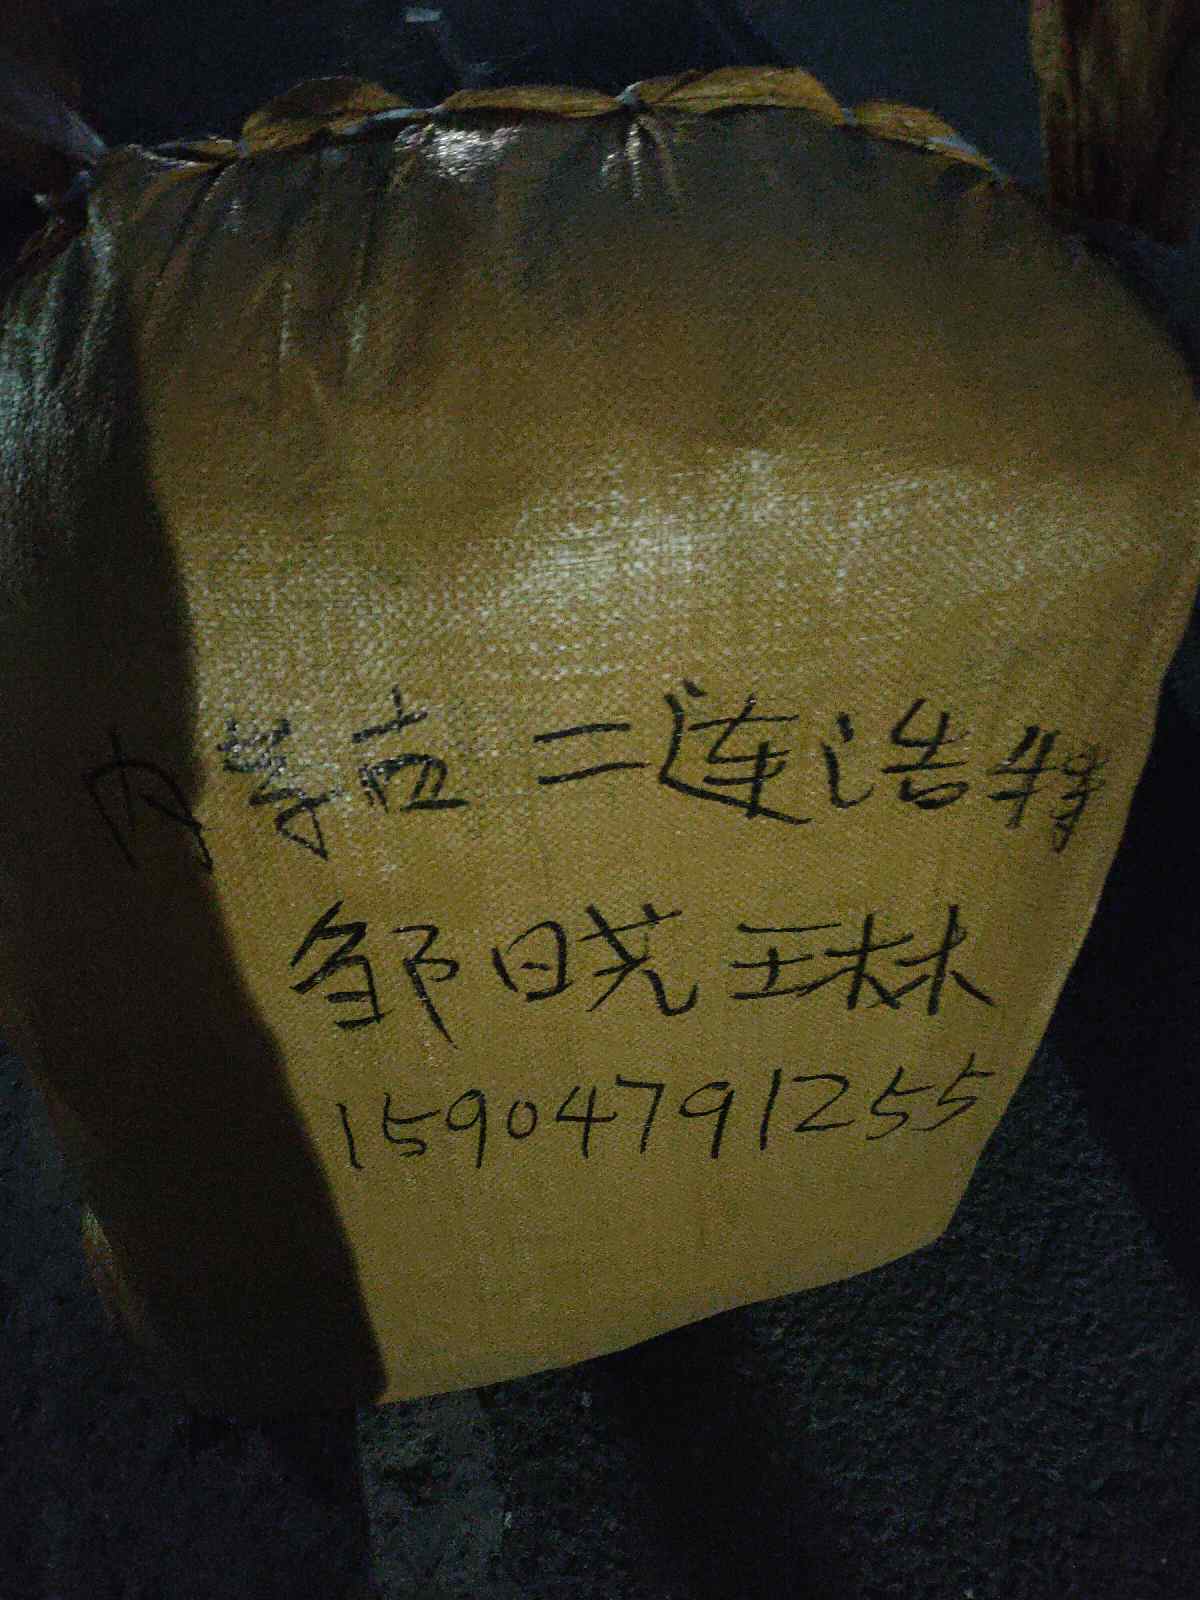 内蒙古二连浩特
邹晓琳
15904791255